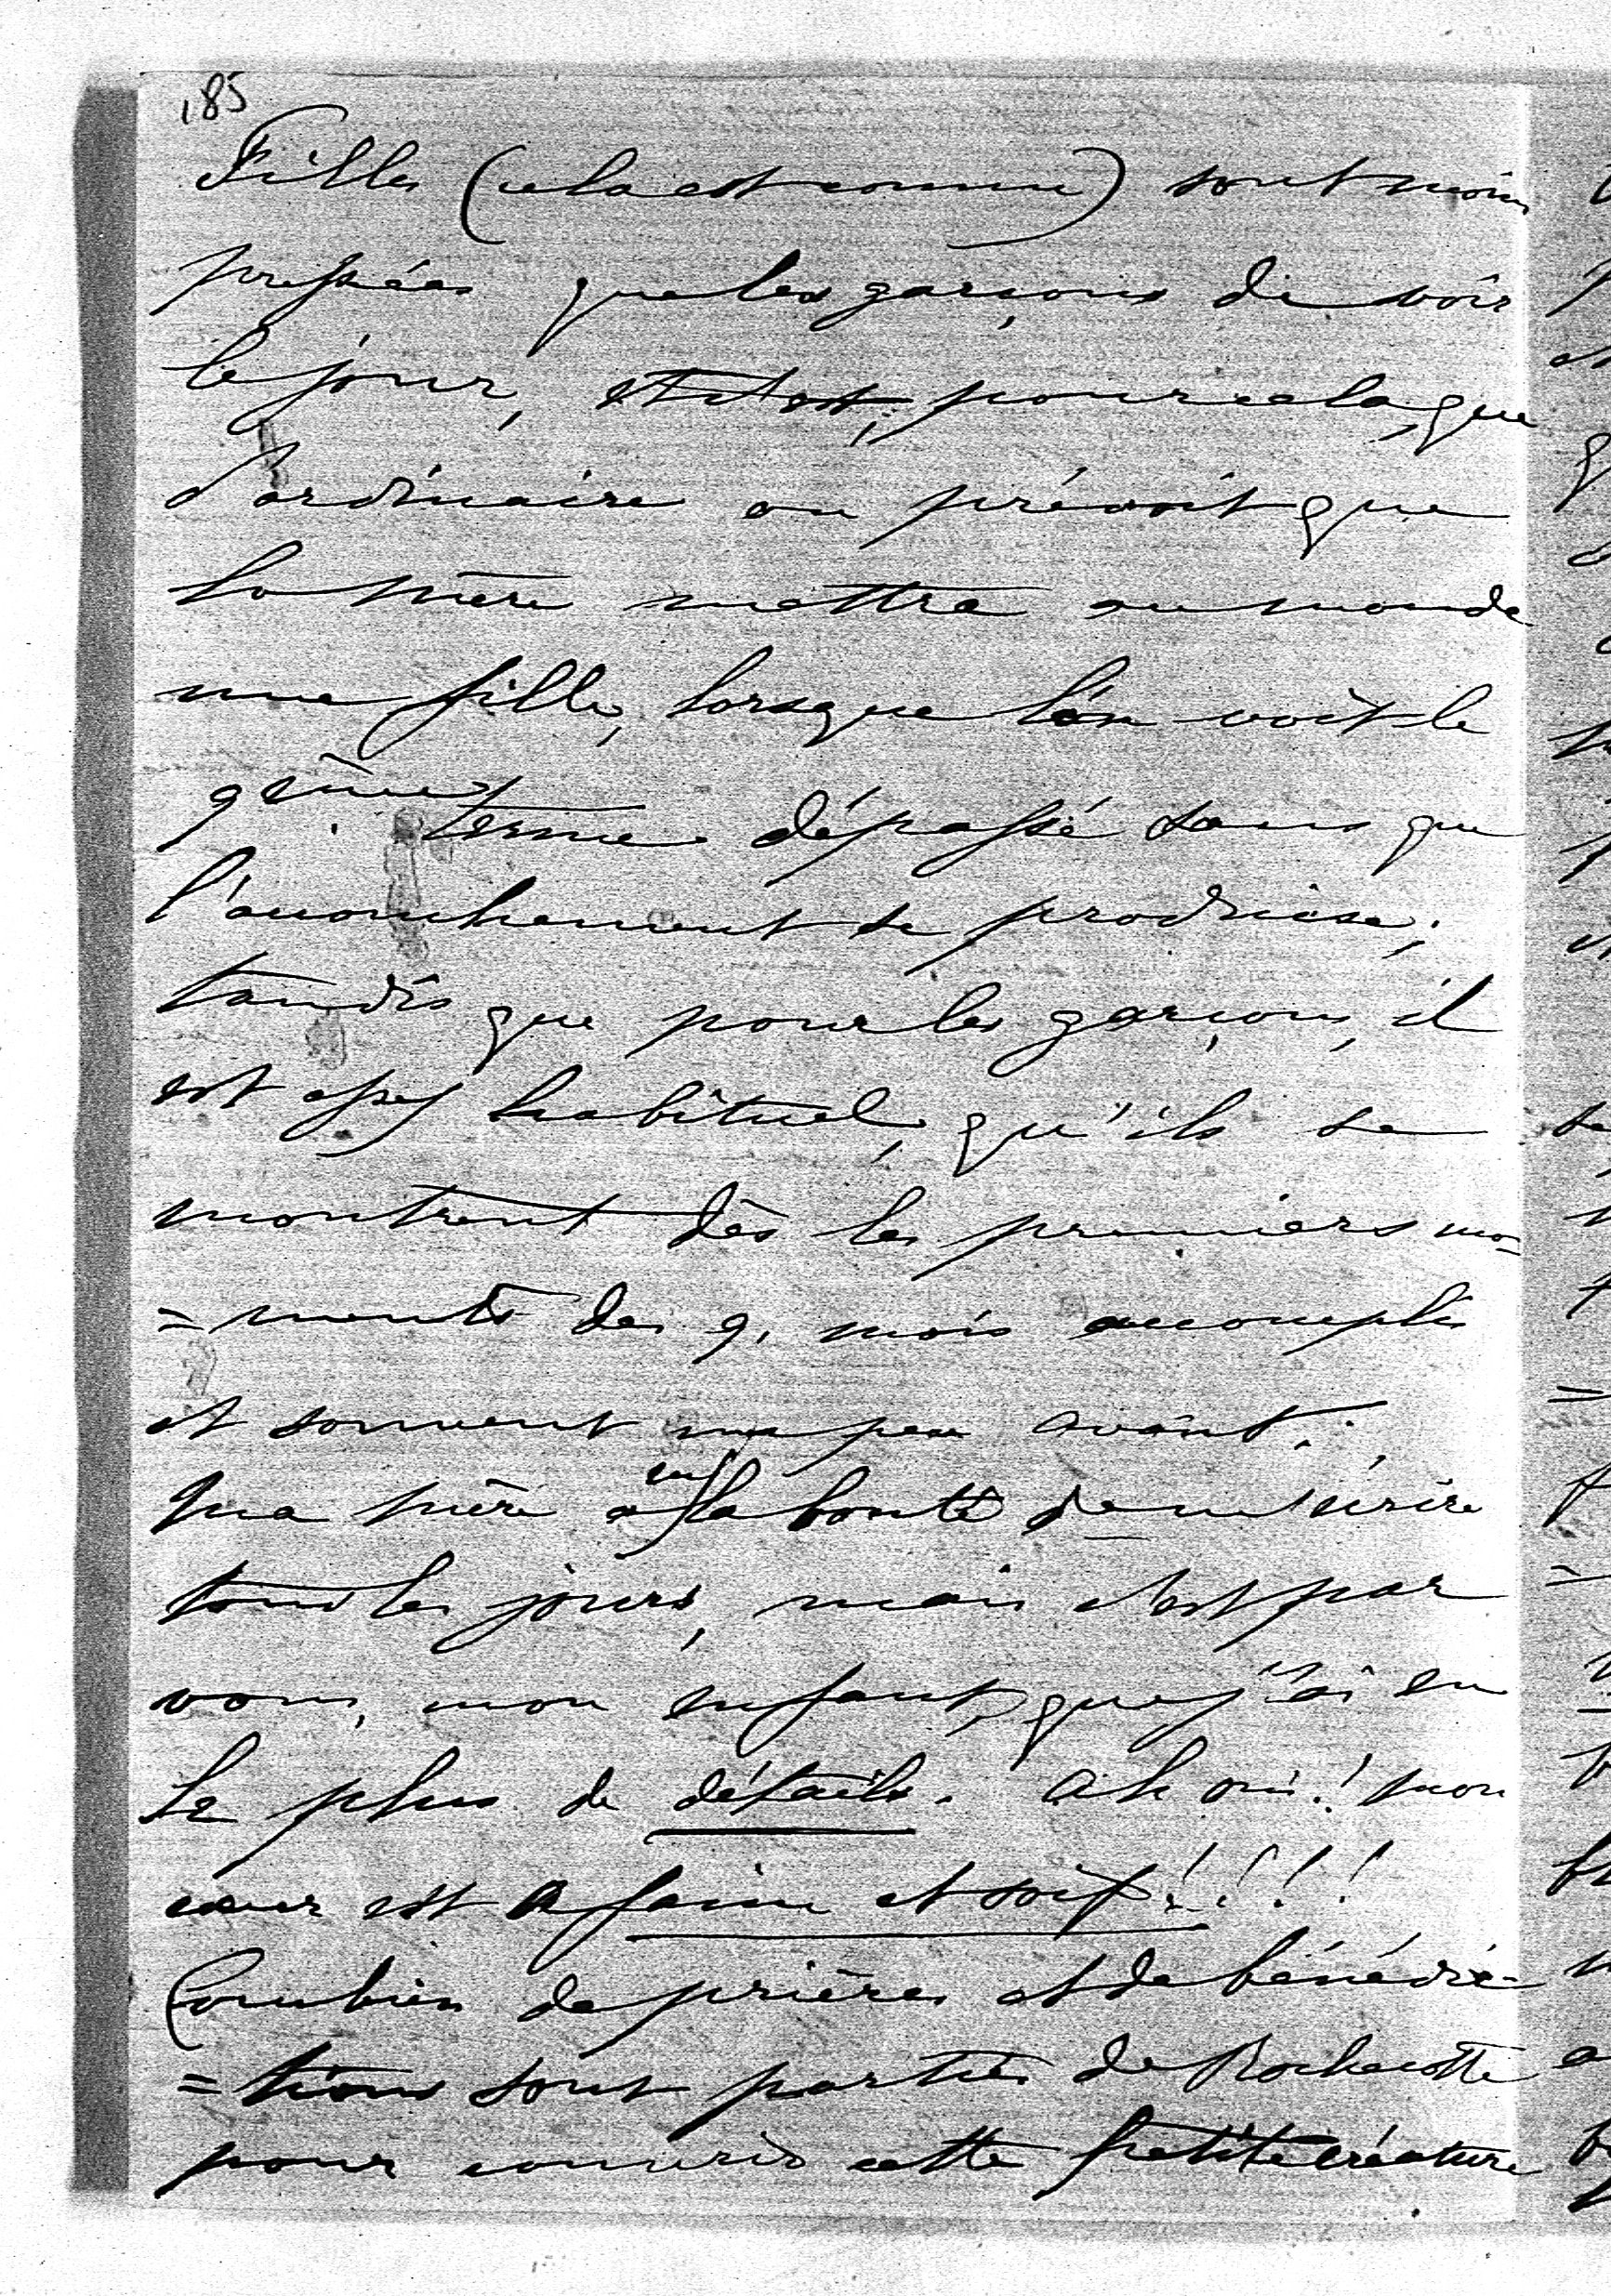 185
Filles (cela est connu) sont moins
pressées que les garçons de voir
le jour, et c'est, pour cela, que
d'ordinaire on prévoit que
la mère mettra au monde
une fille, lorsque l'on voit le
9ème terme dépassé sans que
l'accouchement se produise;
tandis que pour les garçons, il
est assez habituel, qu'ils se
montrent dès les premiers mo-
=ments des 9, mois accomplis
et souvent un peu avant.
Ma mère a eu la bonté de m'écrire
tous les jours, mais c'est par
vous, mon enfant, que j'ai eu
le plus de détails. Ah oui! mon
cœur est a faim et soif!!!!
Combien de prières et de bénédic-
=tions sont parties de Rochecotte
pour couvrir cette petite créature